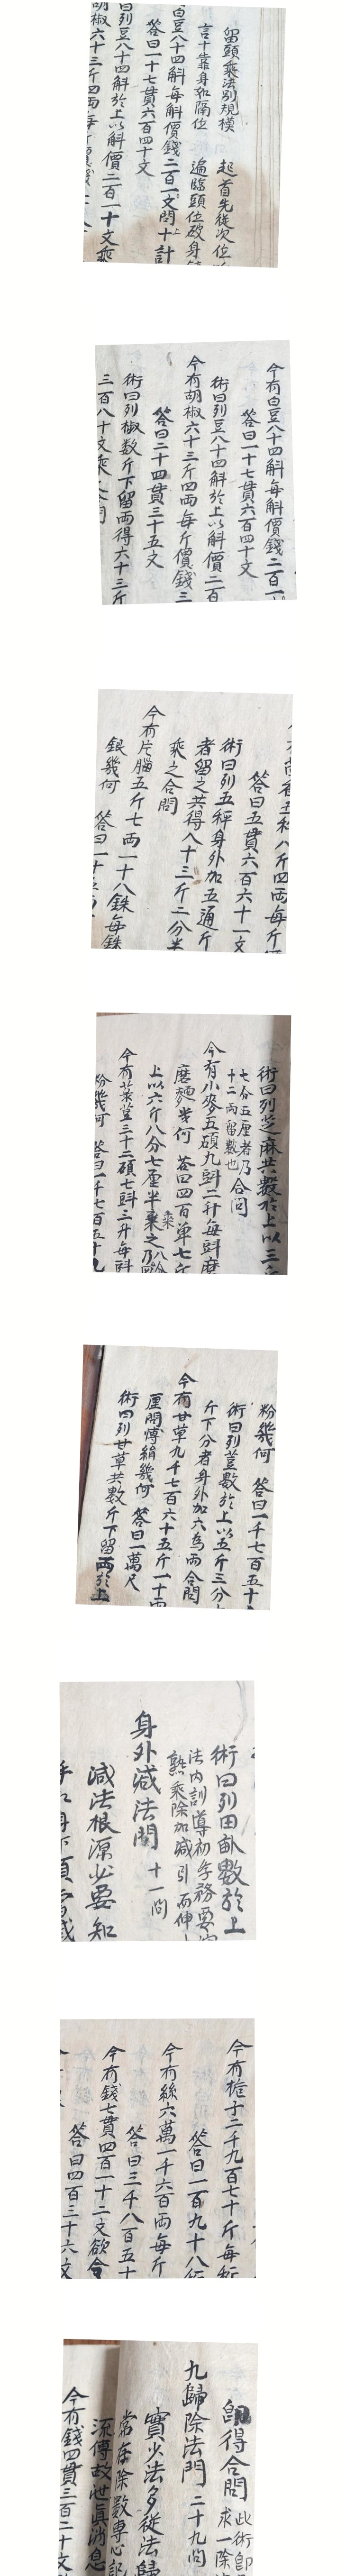 留頭乘法別規模　起首先從次位
言十靠身和隔位　遍臨頭位破身
白豆八十四斛每斛價錢二百一十文問計
答曰一十七貫六百四十文
曰列豆八十四斛於上以斛價二百一十文乘
胡椒六十三斤四兩每斤價錢
今有白豆八十四斛每斛價錢二百一
答曰一十七貫六百四十文
術曰列豆八十四斛於上以斛價二百
今有胡椒六十三斤四兩每斤價錢三
答曰二十四貫三十五文
術曰列椒數斤下留兩得六十三斤
三百八十文乘之合問
八斤四兩每斤
答曰五貫六百六十一文
術曰列五秤身外加五通斤
者留之共得八十三斤二分半
乘之合問
今有片腦五斤七兩一十八銖每銖
銀幾何　答曰一十
術曰列芝麻共數於上以三
七分五厘者乃
十二兩留數也
合問
今有小麥五碩九斗二升每斗磨
磨麵幾何　答曰四百單七斤
上以六斤八分七厘半乘之乃
今有菉荳三十二碩七斗三升每斗
粉幾何　答曰一千七百五十九
粉幾何　答曰一千七百五十
術曰列荳數於上以五斤三分
斤下分者身外加六為兩合問
今有甘草九千七百六十五斤一十兩
厘問博絹幾何　答曰一萬尺
術曰列甘草共數斤下留兩於上
術曰列田畝數於上
法內訓導初學務要
熟乘除加減引而伸
身外減法門　十一問
減法根源必要知
今有梔子二千九百七十斤每
答曰一百九十八
今有絲六萬一千六百兩每斤
答曰三千八百五十
今有錢七貫四百一十二文欲令
答曰四百三十六文
歸得合問
此術即
求一除
九歸除法門　二十九問
實少法多從法歸
常存除數專心記
流傳故泄真消息
今有錢四貫三百二十文